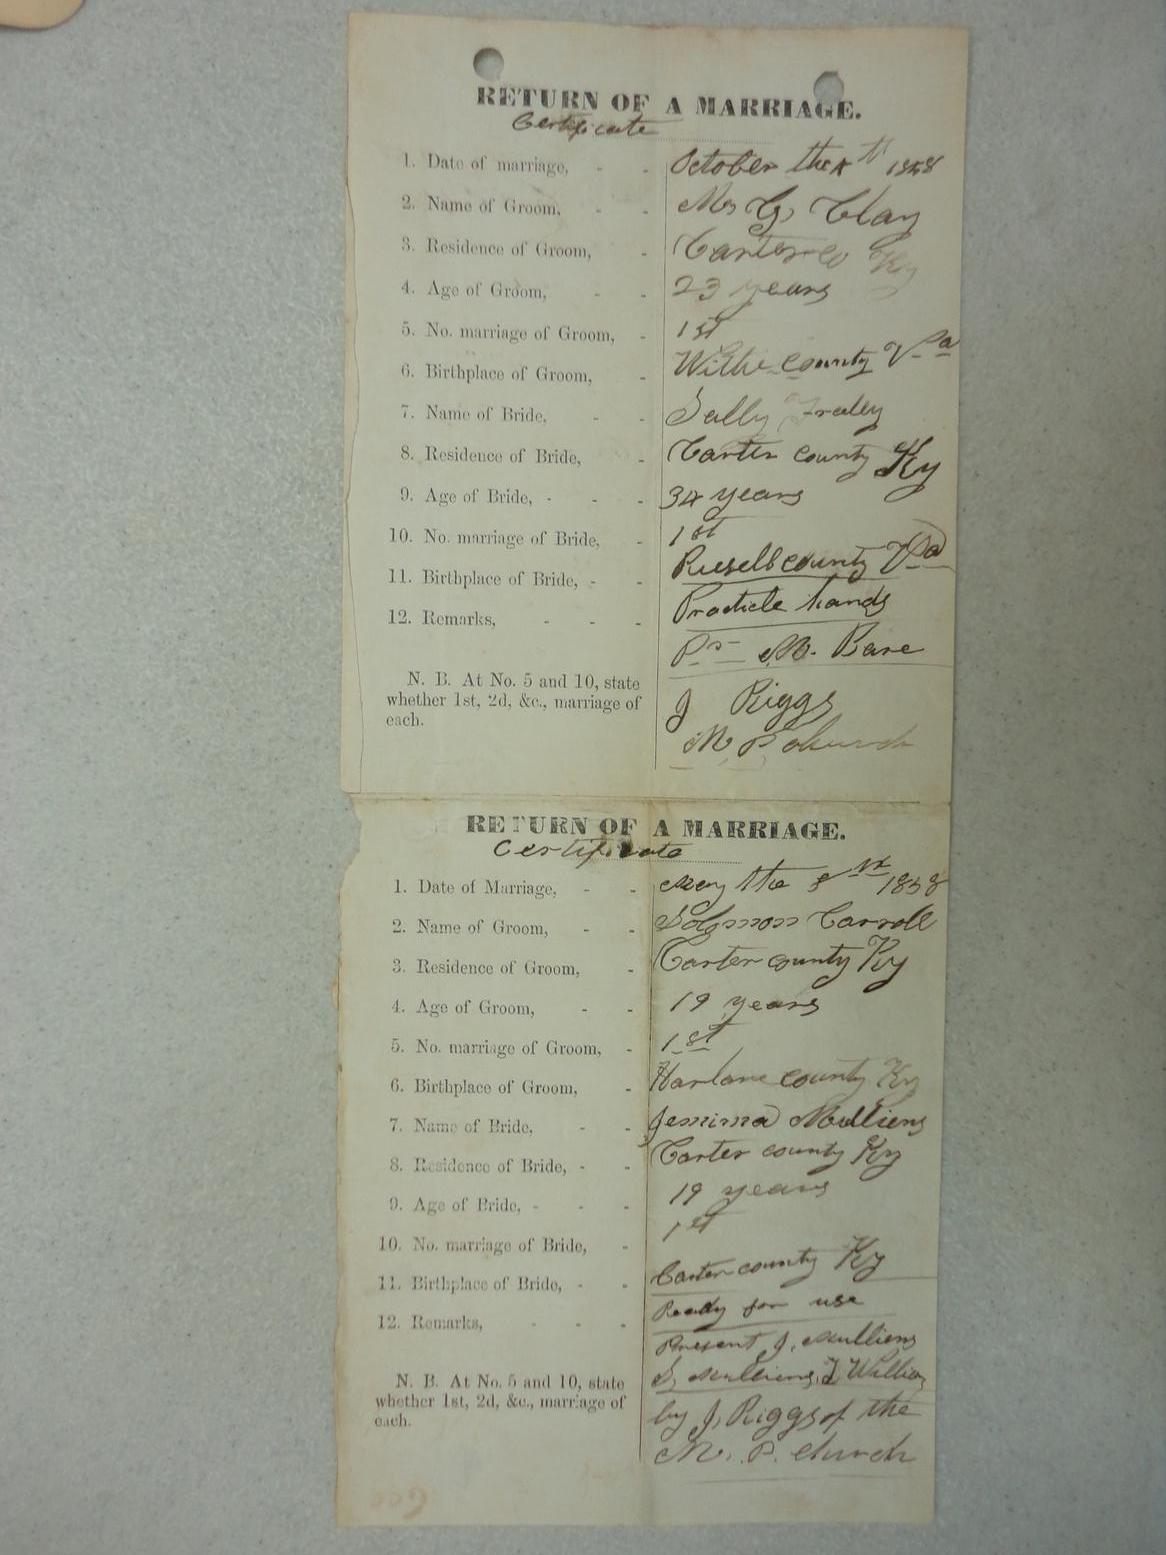 RETURN OF A MARRIAGE.
Certificate
1. Date of marriage, - - October the 1858
2. Name of Groom, - - Clay
3. Residence of Groom, - Carter co Ky
4. Age of Groom, - - 23 years
5. No. marriage of Groom, - 1st
6. Birthplace of Groom, - Withe county Va
7. Name of Bride, - - Sally Fraley
8. Residence of Bride, - Carter county Ky
9. Age of Bride, - - - 34 years
10. No. marriage of Bride, - 1st
11. Birthplace of Bride, - - Rusell county Va
12. Remarks, - - - hands
Pr M. Bare
N. B. At No. 5 and 10, state
whether 1st, 2d, &c., marriage of
each.
J Riggs
M P church
RETURN OF A MARRIAGE.
Certificate
1. Date of Marriage, - - May the 1858
2. Name of Groom, - - Solomon Carroll
3. Residence of Groom, - Carter county Ky
4. Age of Groom, - - 19 years
5. No. marriage of Groom, - 1st
6. Birthplace of Groom, - Harlane county Ky
7. Name of Bride, - - Jemima Mulliens
8. Residence of Bride, - - Carter county Ky
9. Age of Bride, - - - 19 years
10. No. marriage of Bride, - 1st
11. Birthplace of Bride, - - Carter county Ky
12. Remarks, - - - Ready for use
Present J. Mulliens
S. Mulliens,
N. B. At No. 5 and 10, state
whether 1st, 2d, &c., marriage of
each.
by J. Riggs of the
M. P. church